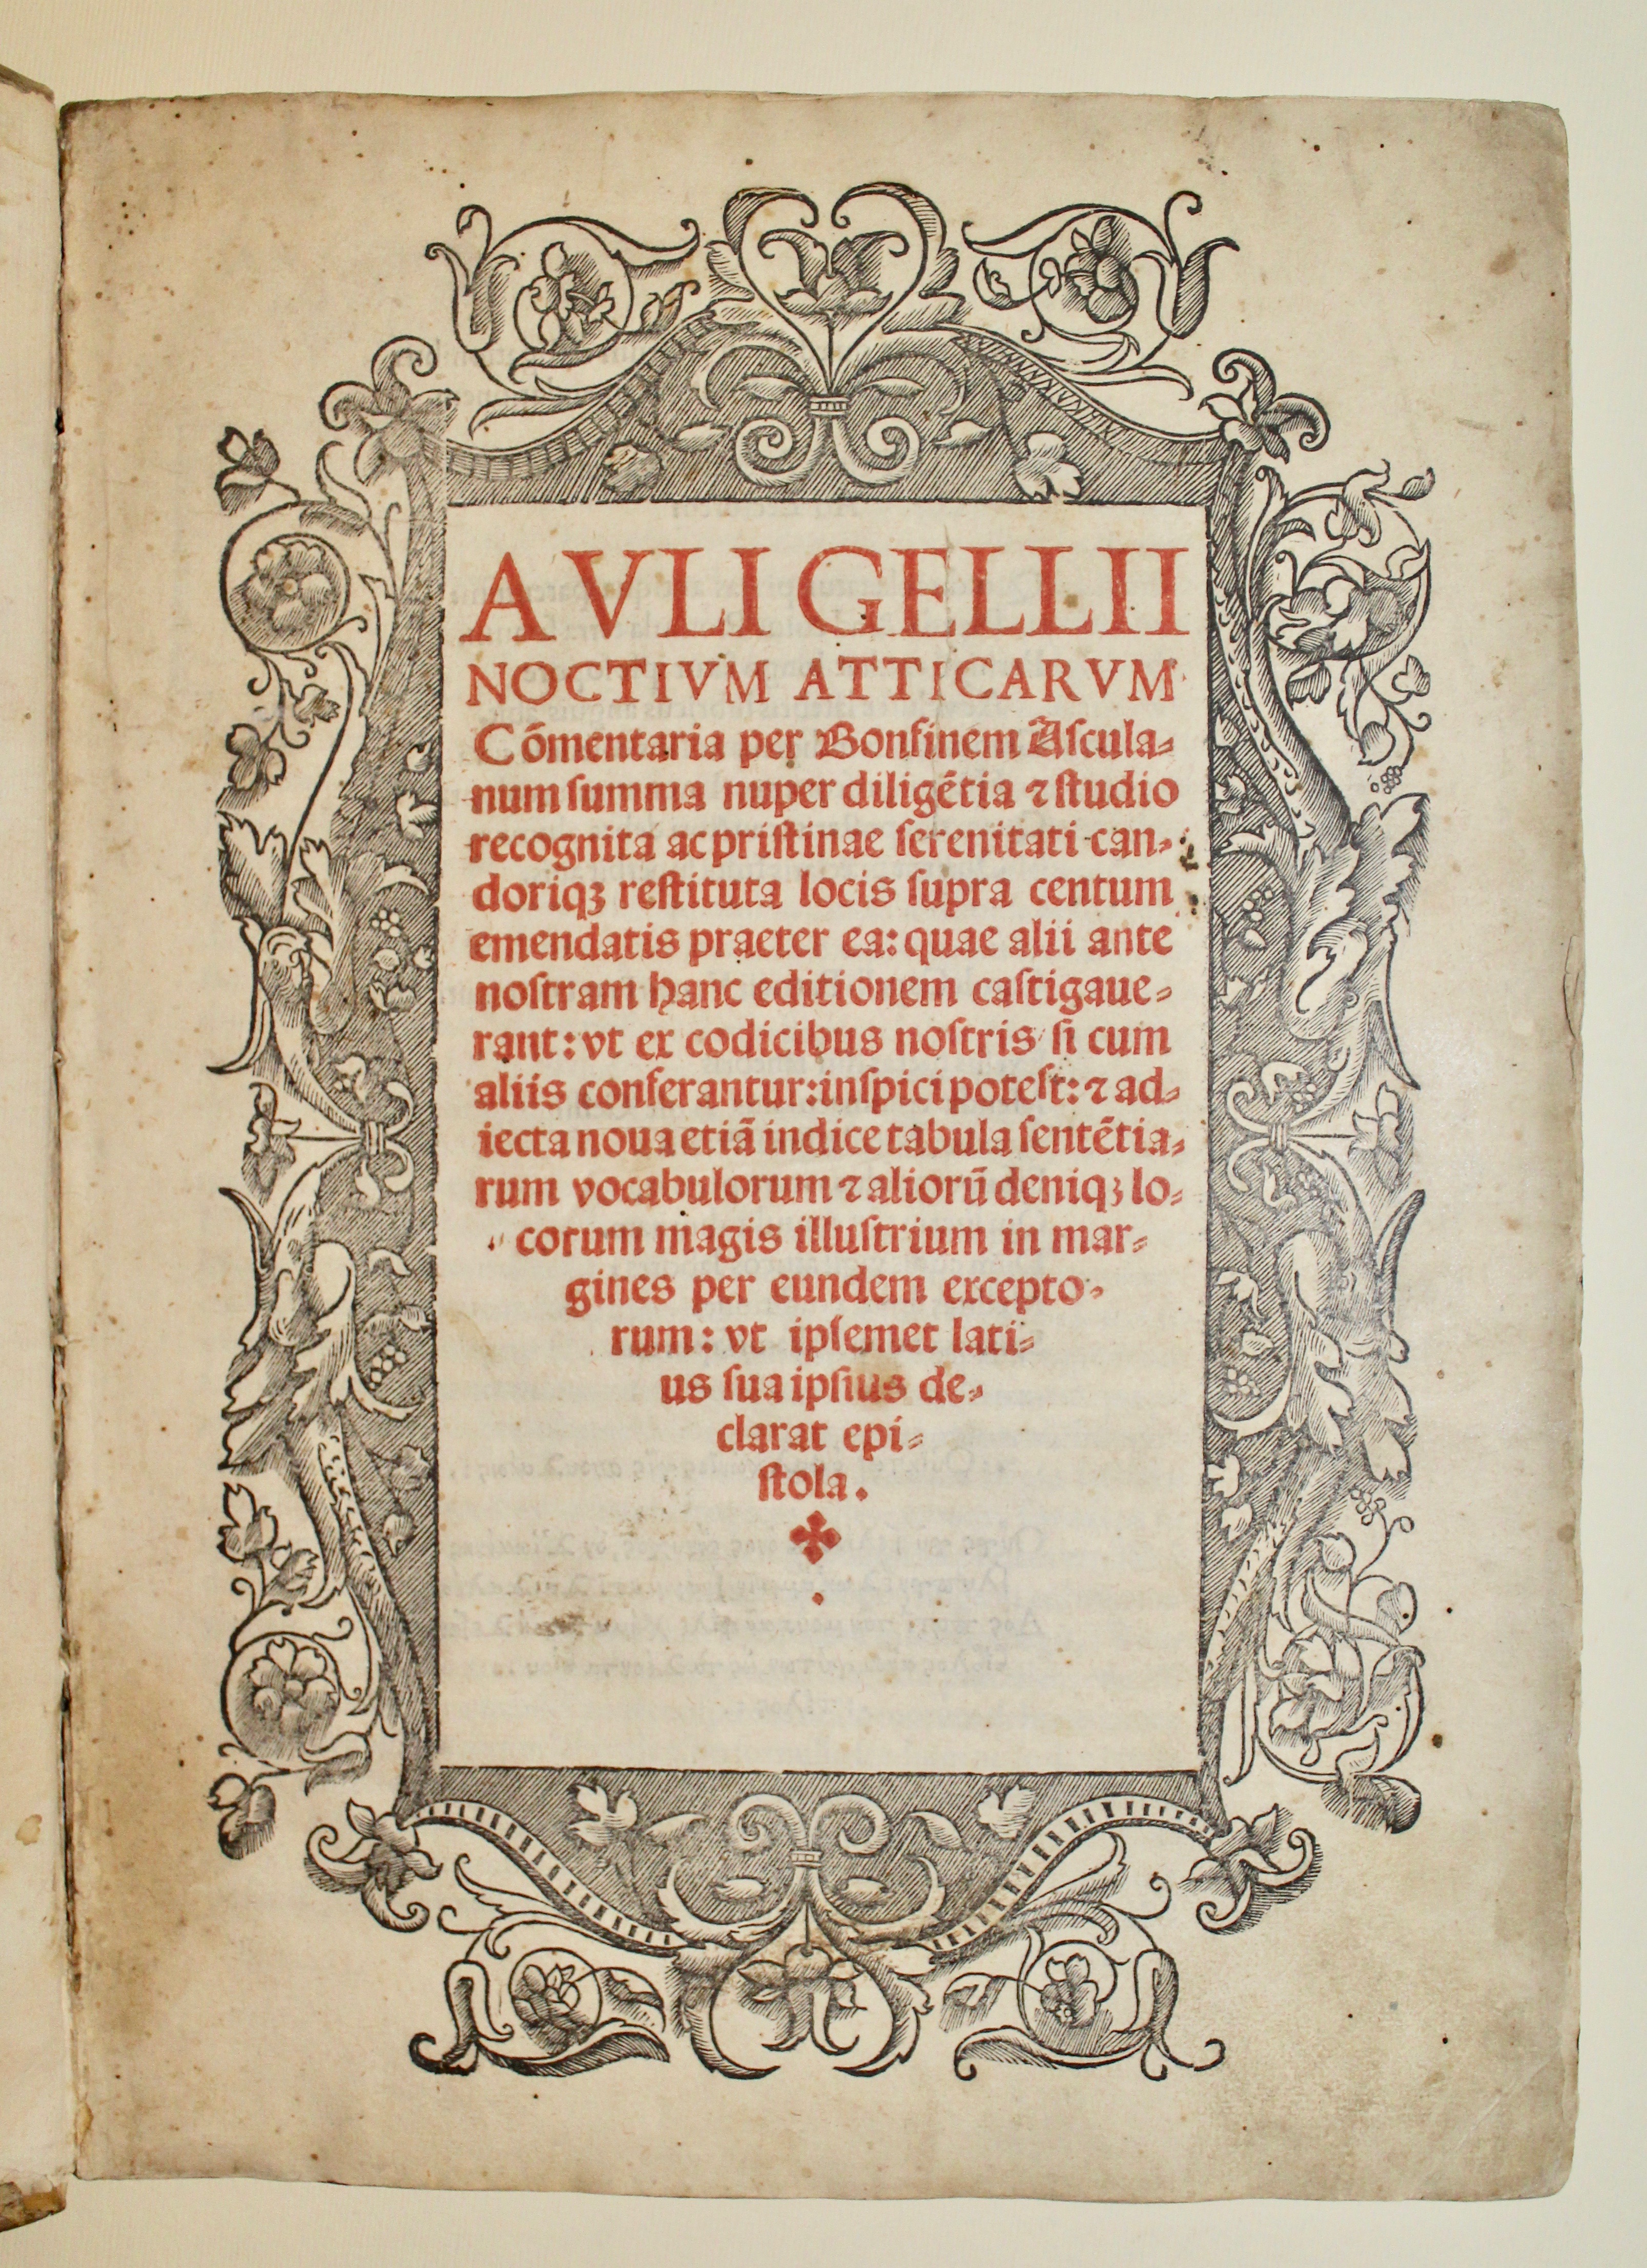 AVLI GELLII
NOCTIVM ATTICARVM
Cōmentaria per Bonfinem Ascula⸗
num ſumma nuper diligētia ⁊ ſtudio
recognita ac priſtinae ſerenitati can⸗
doriqꝫ reſtituta locis ſupra centum
emendatis praeter ea: quae alii ante
noſtram hanc editionem caſtigaue⸗
rant: vt ex codicibus noſtris ſi cum
aliis conferantur: inſpici poteſt: ⁊ ad⸗
iecta noua etiā indice tabula ſentētia⸗
rum vocabulorum ⁊ aliorū deniqꝫ lo⸗
corum magis illuſtrium in mar⸗
gines per eundem excepto⸗
rum: vt ipſemet lati⸗
us ſua ipſius de⸗
clarat epi⸗
ſtola.